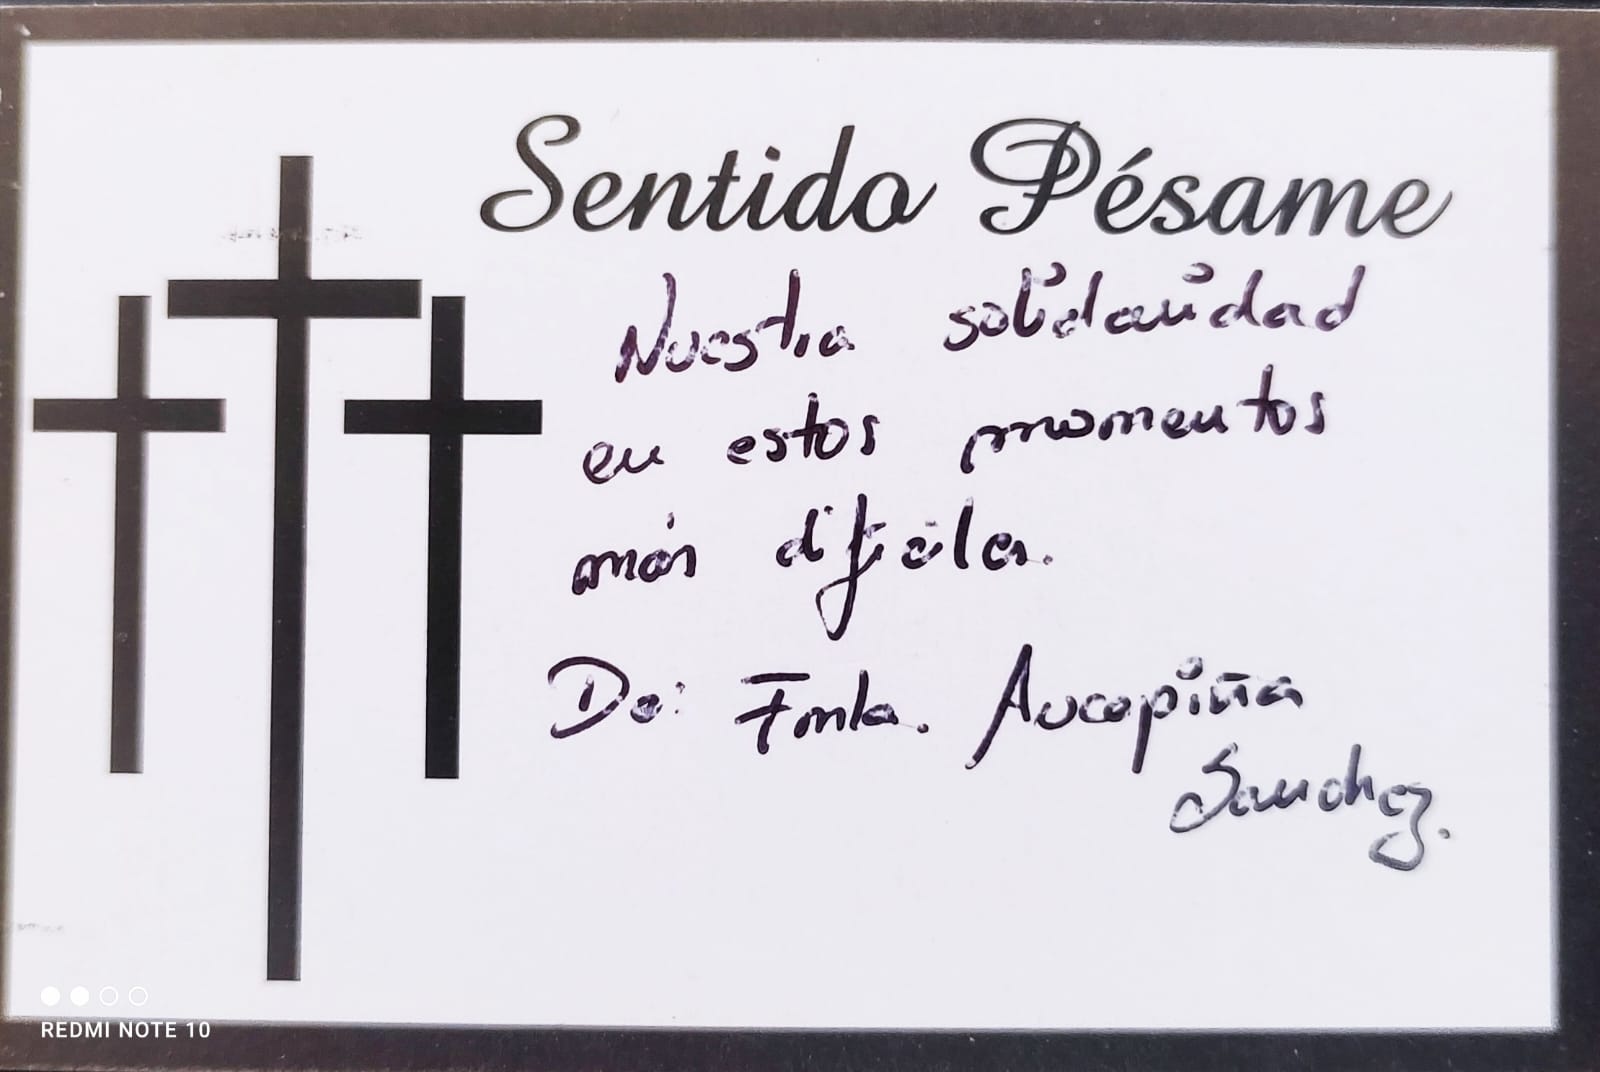 Sentido Pésame
Nuestra solidaridad
en estos momentos
más difíciles.
De: Fmla. Aucapiña
Sanchez.
REDMI NOTE 10